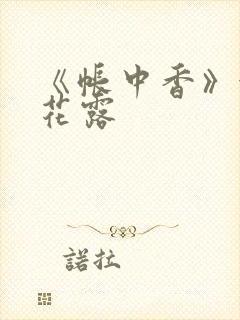 《帳中香》
花露
諾拉